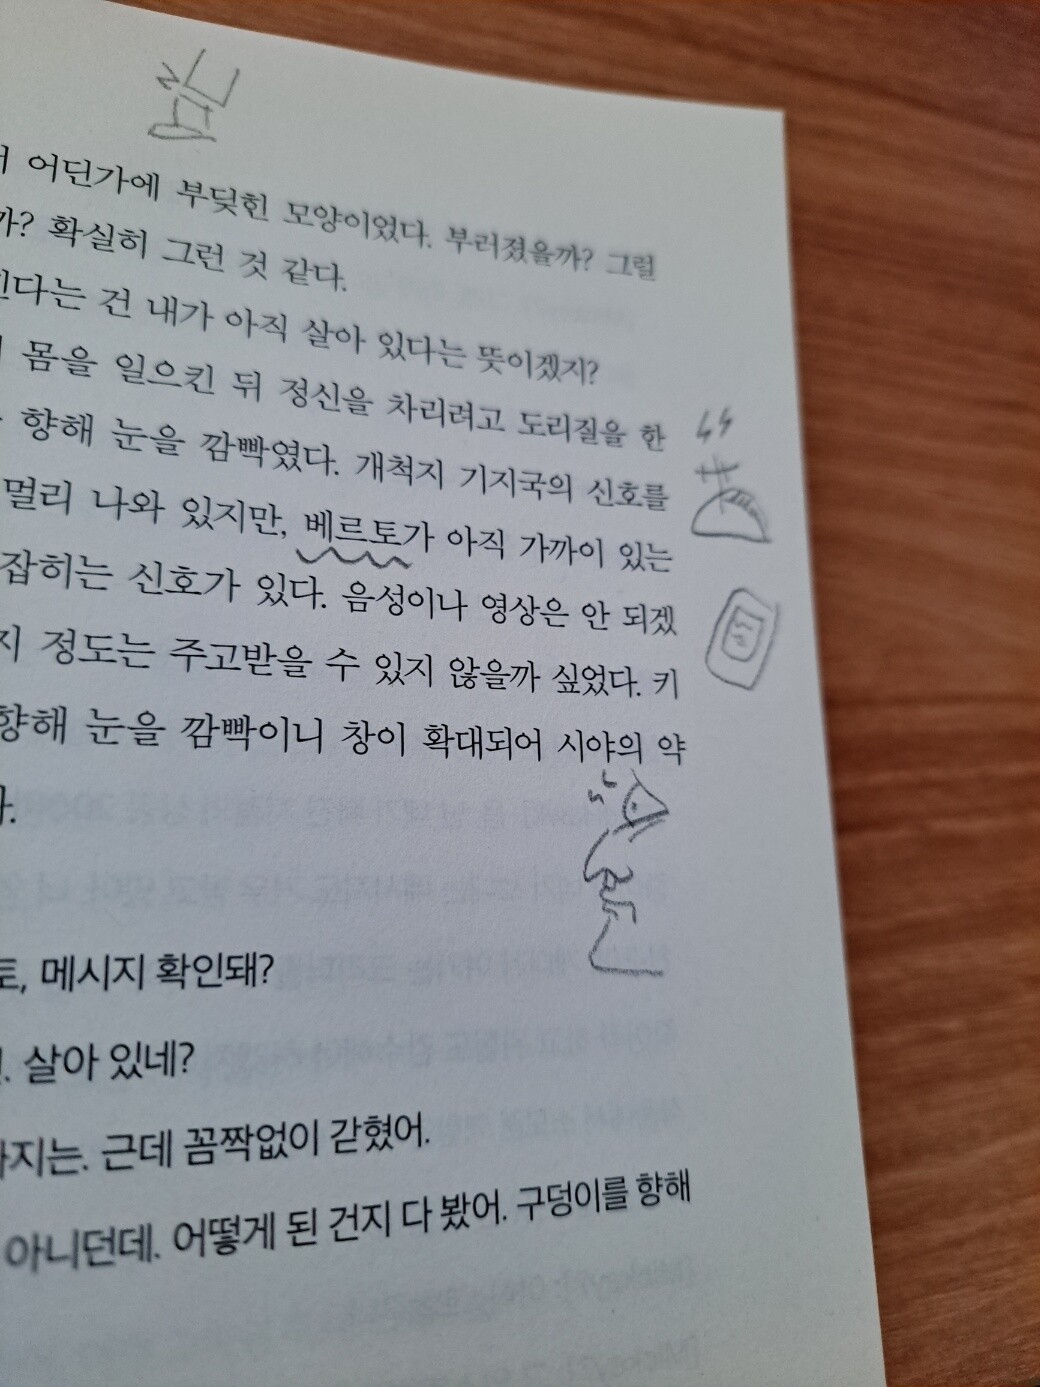 어딘가에 부딪힌 모양이었다. 부러졌을까? 그럴
까? 확실히 그런 것 같다.
다는 건 내가 아직 살아 있다는 뜻이겠지?
몸을 일으킨 뒤 정신을 차리려고 도리질을 한
향해 눈을 깜빡였다. 개척지 기지국의 신호를
멀리 나와 있지만, 베르토가 아직 가까이 있는
잡히는 신호가 있다. 음성이나 영상은 안 되겠
지 정도는 주고받을 수 있지 않을까 싶었다. 키
향해 눈을 깜빡이니 창이 확대되어 시야의 약
토, 메시지 확인돼?
살아 있네?
까지는. 근데 꼼짝없이 갇혔어.
아니던데. 어떻게 된 건지 다 봤어. 구덩이를 향해